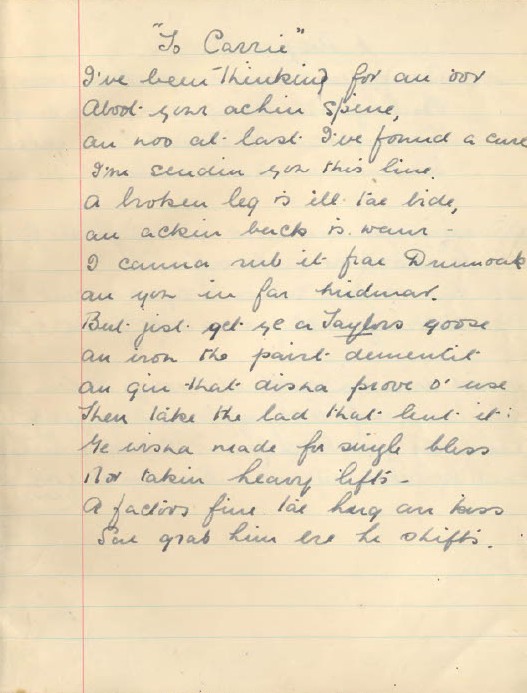 "To Carrie"
I've been thinking for an oor
Aboot your achin spine,
an noo at last I've found a cure
I'm sendin you this line.
A broken leg is ill tae bide,
an achin back is waur -
I canna rub it frae Drumoak
an you in far Midmar.
But jist get ye a Taylors goose
an iron the pairt dementit
an gin that disna prove o' use
Then take the lad that lent it:
Ye wisna made for single bless
Nor takin heavy lifts -
A factors fine tae hug an kiss
Sae grab him ere he shifts.